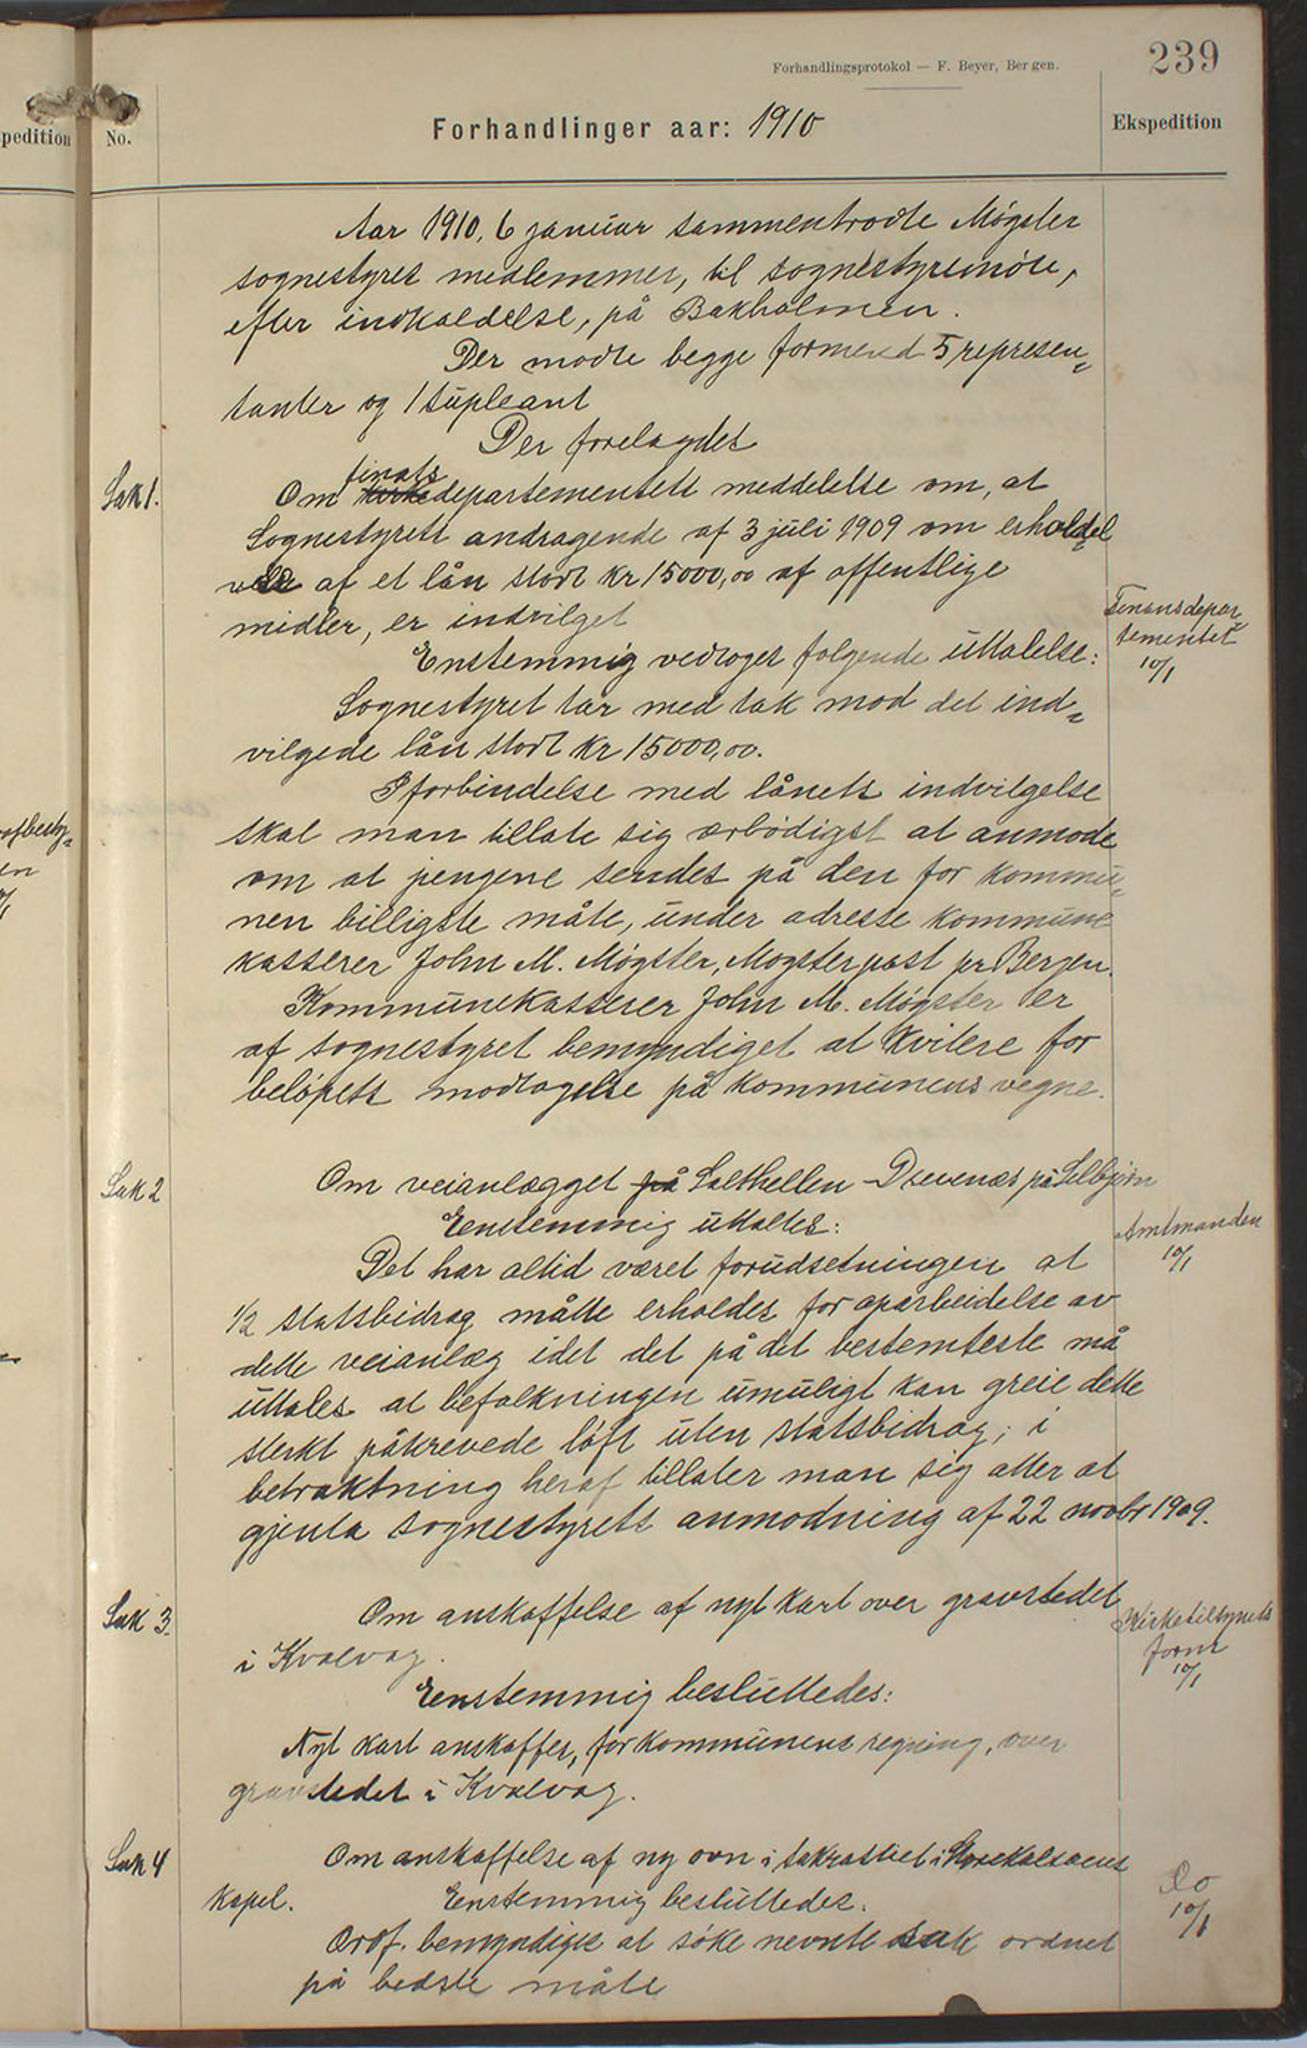 239
Forhandlingsprotokol — F. Beyer, Bergen.
pedition
No.
Forhandlinger aar: 1910
Ekspedition
Aar 1910, 6 januar sammentrodte Møgster
sognestyres medlemmer, til sognestyremöte,
efter indkaldelse, på Bakholmen.
Der modte begge formend 5 represen-
tanter og 1 supleant
Der forelagdes
Sak 1.
finats
Om kirkedepartementets meddelelse om, at
Sognestyrets andragende af 3 juli 1909 om erholdel
af et lån stort kr 15000,00 af offentlige
midler, er indvilget
Finansdepar-
tementet
10/1
Enstemmig vedtoges folgende uttalelse:
Sognestyret tar med tak mod det ind-
vilgede lån stort kr 15000,00.
I forbindelse med lånets indvilgelse
skal man tillate sig ærbödigst at anmode
om at pengene sendes på den for kommu-
nen billigste måte, under adresse kommune
kasserer John M. Møgster, Mogsterpost pr Bergen.
Kommunekasserer John M. Møgster er
af sognestyret bemyndiget at kvitere for
belöpets modtagelse på kommunens vegne.
Sak 2
Om veianlægget på Salthellen - Drevenes på Selbjørn
Eenstemmig uttaltes:
Amtmanden
10/1
Det har altid været forudsetningen at
1/2 statsbidrag måtte erholdes for oparbeidelse av
dette veianlæg idet det på det bestemteste må
uttales at befolkningen umuligt kan greie dette
sterkt påkrevede löft uten statsbidrag; i
betraktning heraf tillater man sig atter at
gjenta sognestyrets anmodning af 22 novbr 1909.
Sak 3.
Om anskaffelse af nyt kart over gravstedet
i Kvalvag.
Kirketilsynets
form
10/1
Eenstemmig besluttedes:
Nyt kart anskaffes, for kommunens regning, over
gravstedet i Kvalvag.
Sak 4
Om anskaffelse af ny ovn i sakrastiet i Storekalsoens
kapel.
Eenstemmig besluttedes.
Do
10/1
Ordf. bemyndiges at söke nevnte sak ordnet
på bedste måte